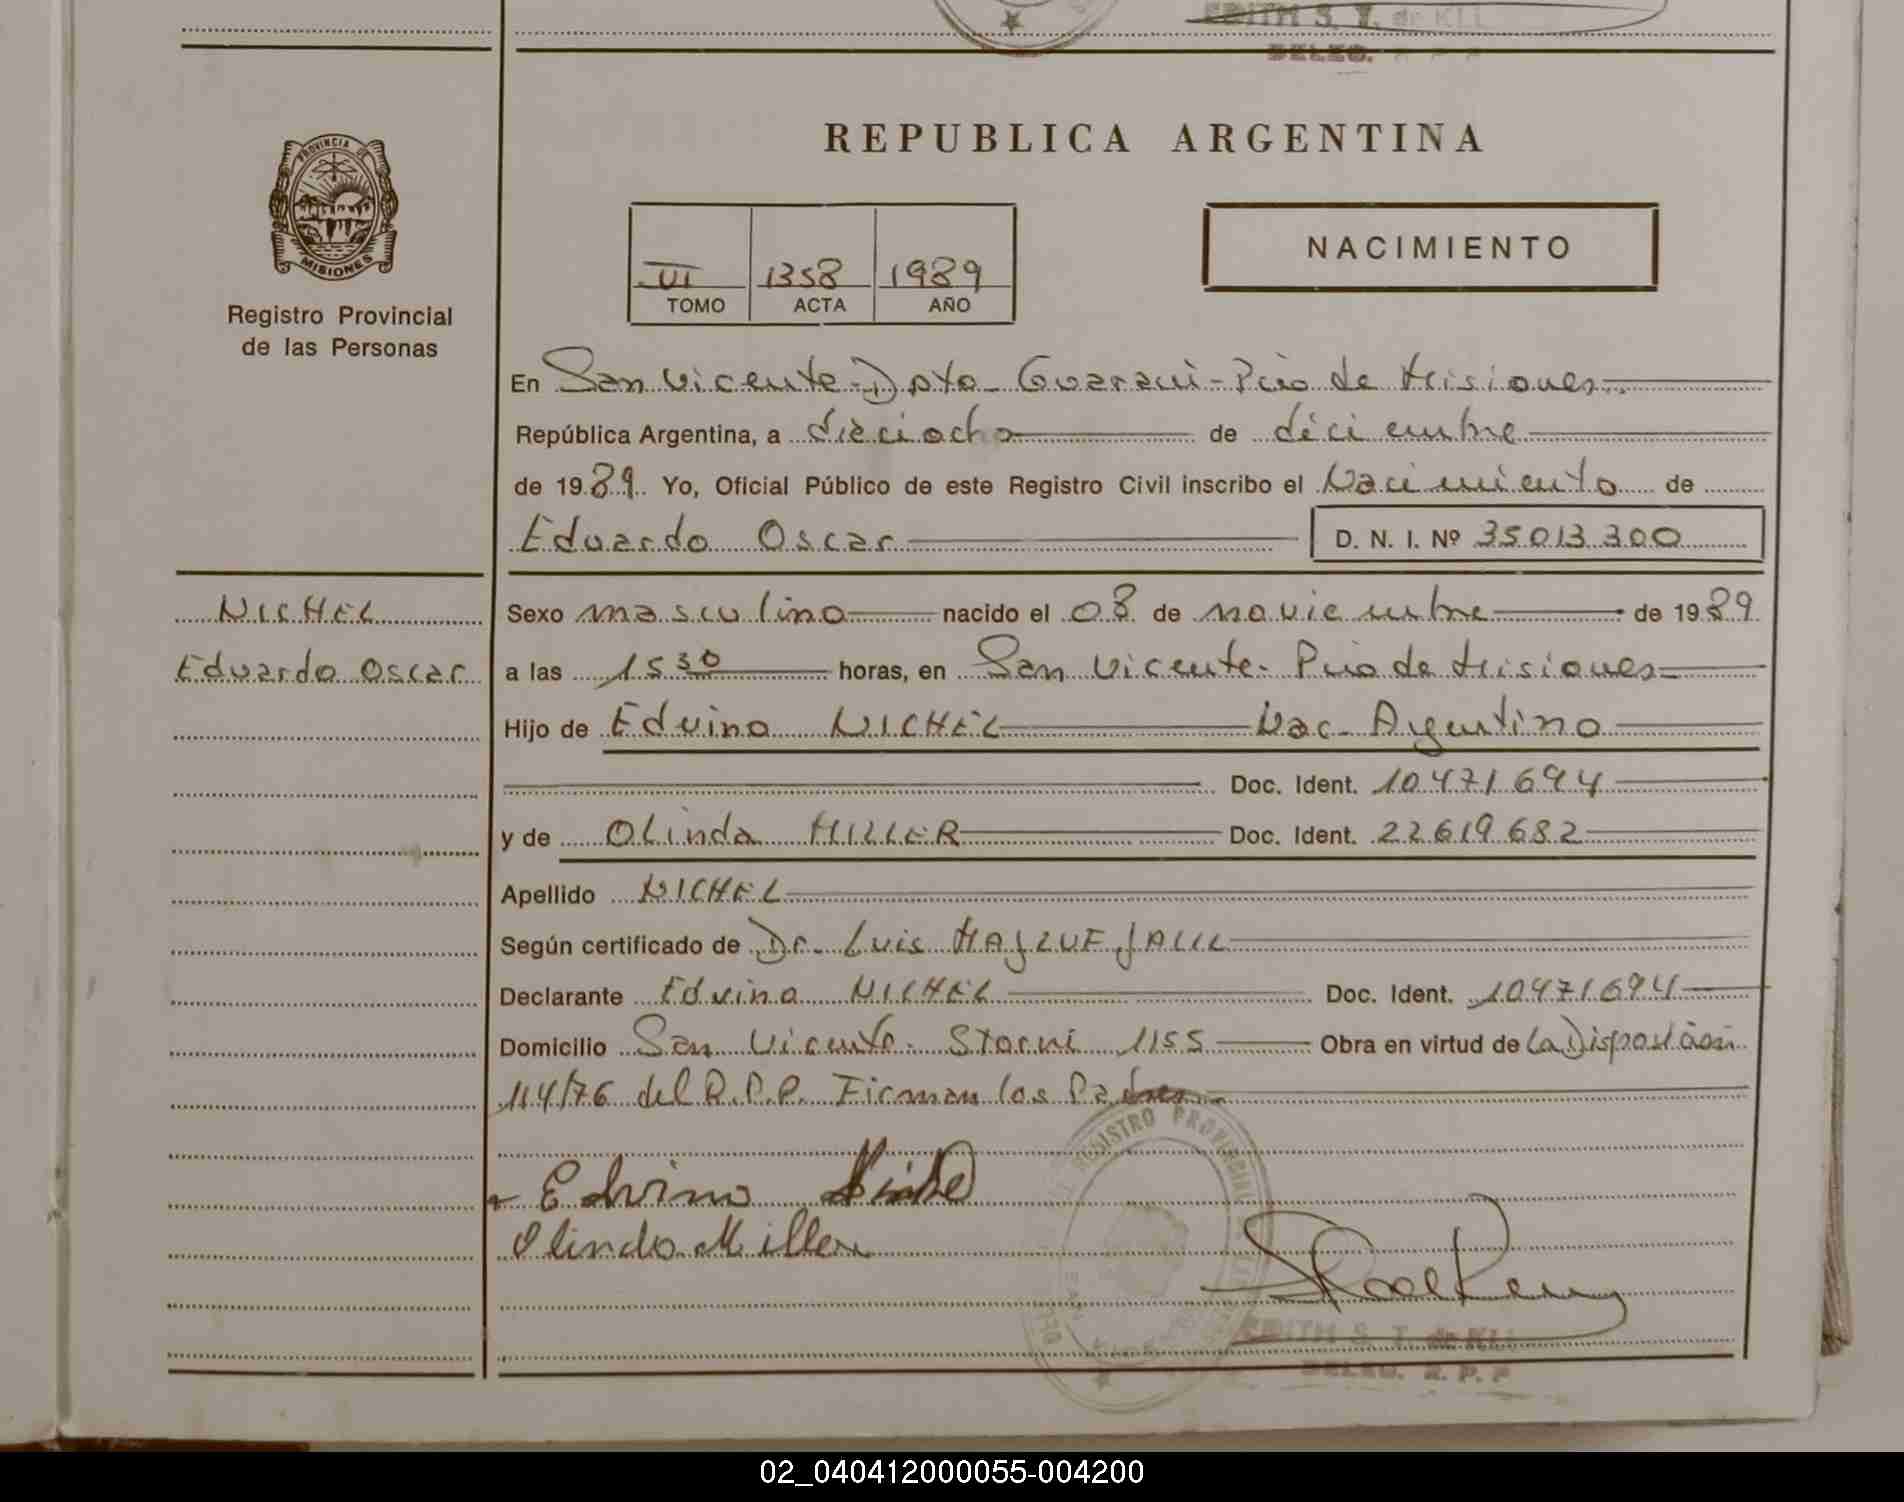 EDITH S. T. de KLL
DELEG. R P P
REPUBLICA ARGENTINA
PROVINCIA DE
MISIONES
Registro Provincial
de las Personas
VI 1358 1989
TOMO ACTA AÑO
NACIMIENTO
En San Vicente - Dpto - Guaraní - Pcia de Misiones
República Argentina, a dieciocho de diciembre
de 1989. Yo, Oficial Público de este Registro Civil inscribo el Nacimiento de
Eduardo Oscar D. N. I. Nº 35013300
NICHEL
Eduardo Oscar
Sexo masculino nacido el 08 de noviembre de 1989
a las 15 30 horas, en San Vicente - Pcia de Misiones
Hijo de Edvino NICHEL Nac - Argentino
Doc. Ident. 10471694
y de OLinda MILLER Doc. Ident. 22619682
Apellido NICHEL
Según certificado de Dr. Luis JALIL
Declarante Edvino NICHEL Doc. Ident. 10471694
Domicilio San Vicente - Storni 1155 Obra en virtud de La Disposición
114/76 del R.P.P. Firman los Padres
Edvino
Olinda Miller
REGISTRO PROVINCIAL
EDITH S. T. de KLL
DELEG. R. P. P
02_040412000055-004200